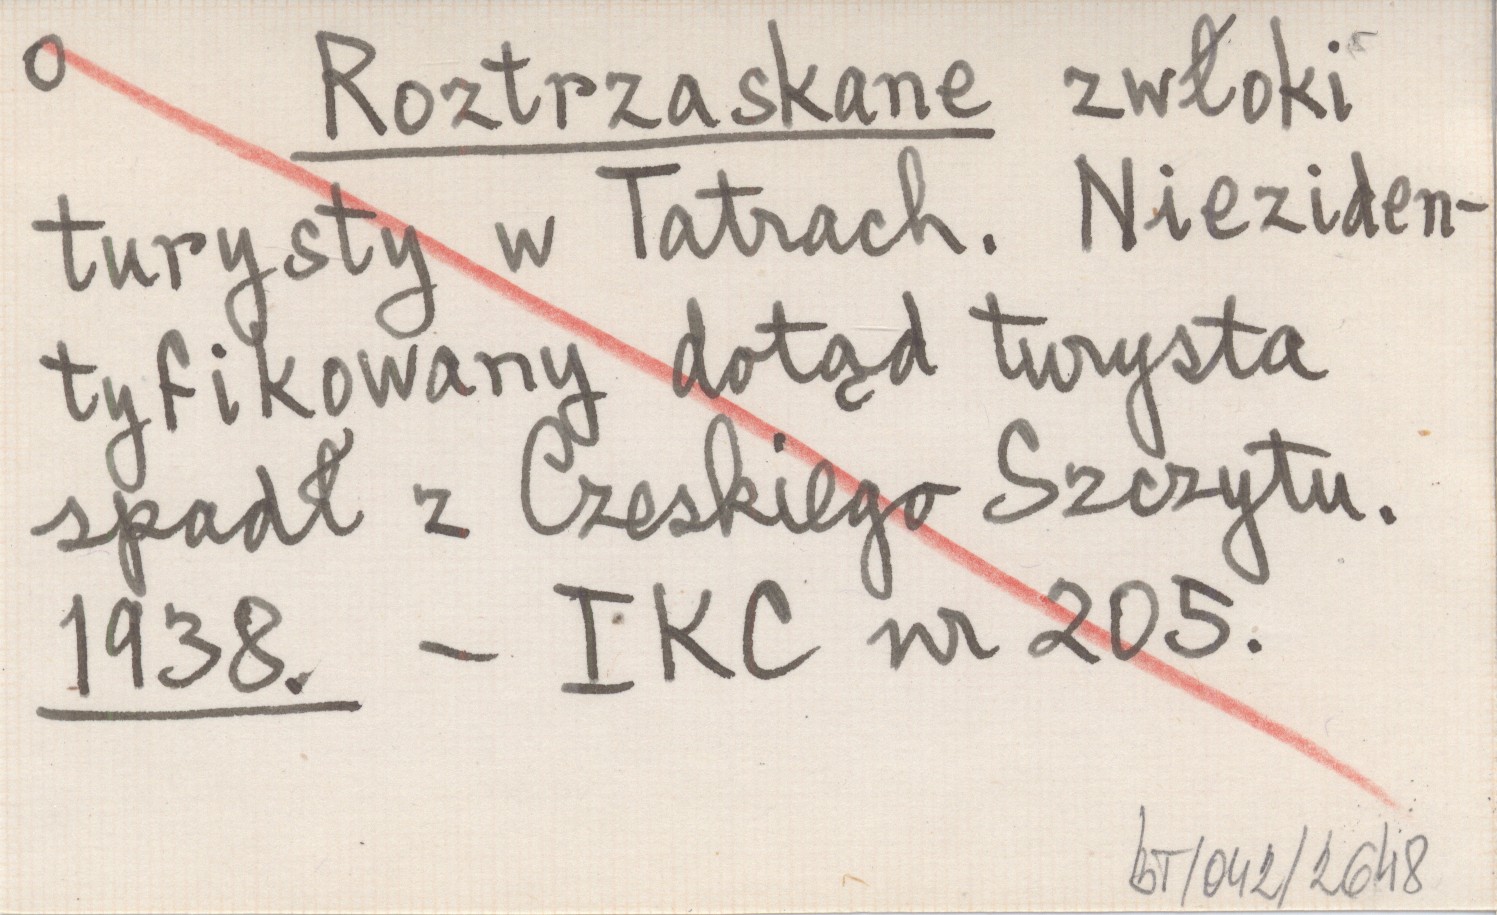 o Roztrzaskane zwłoki
turysty w Tatrach. Nieziden-
tyfikowany dotąd turysta
spadł z Czeskiego Szczytu.
1938. – IKC nr 205.
bT/042/2648